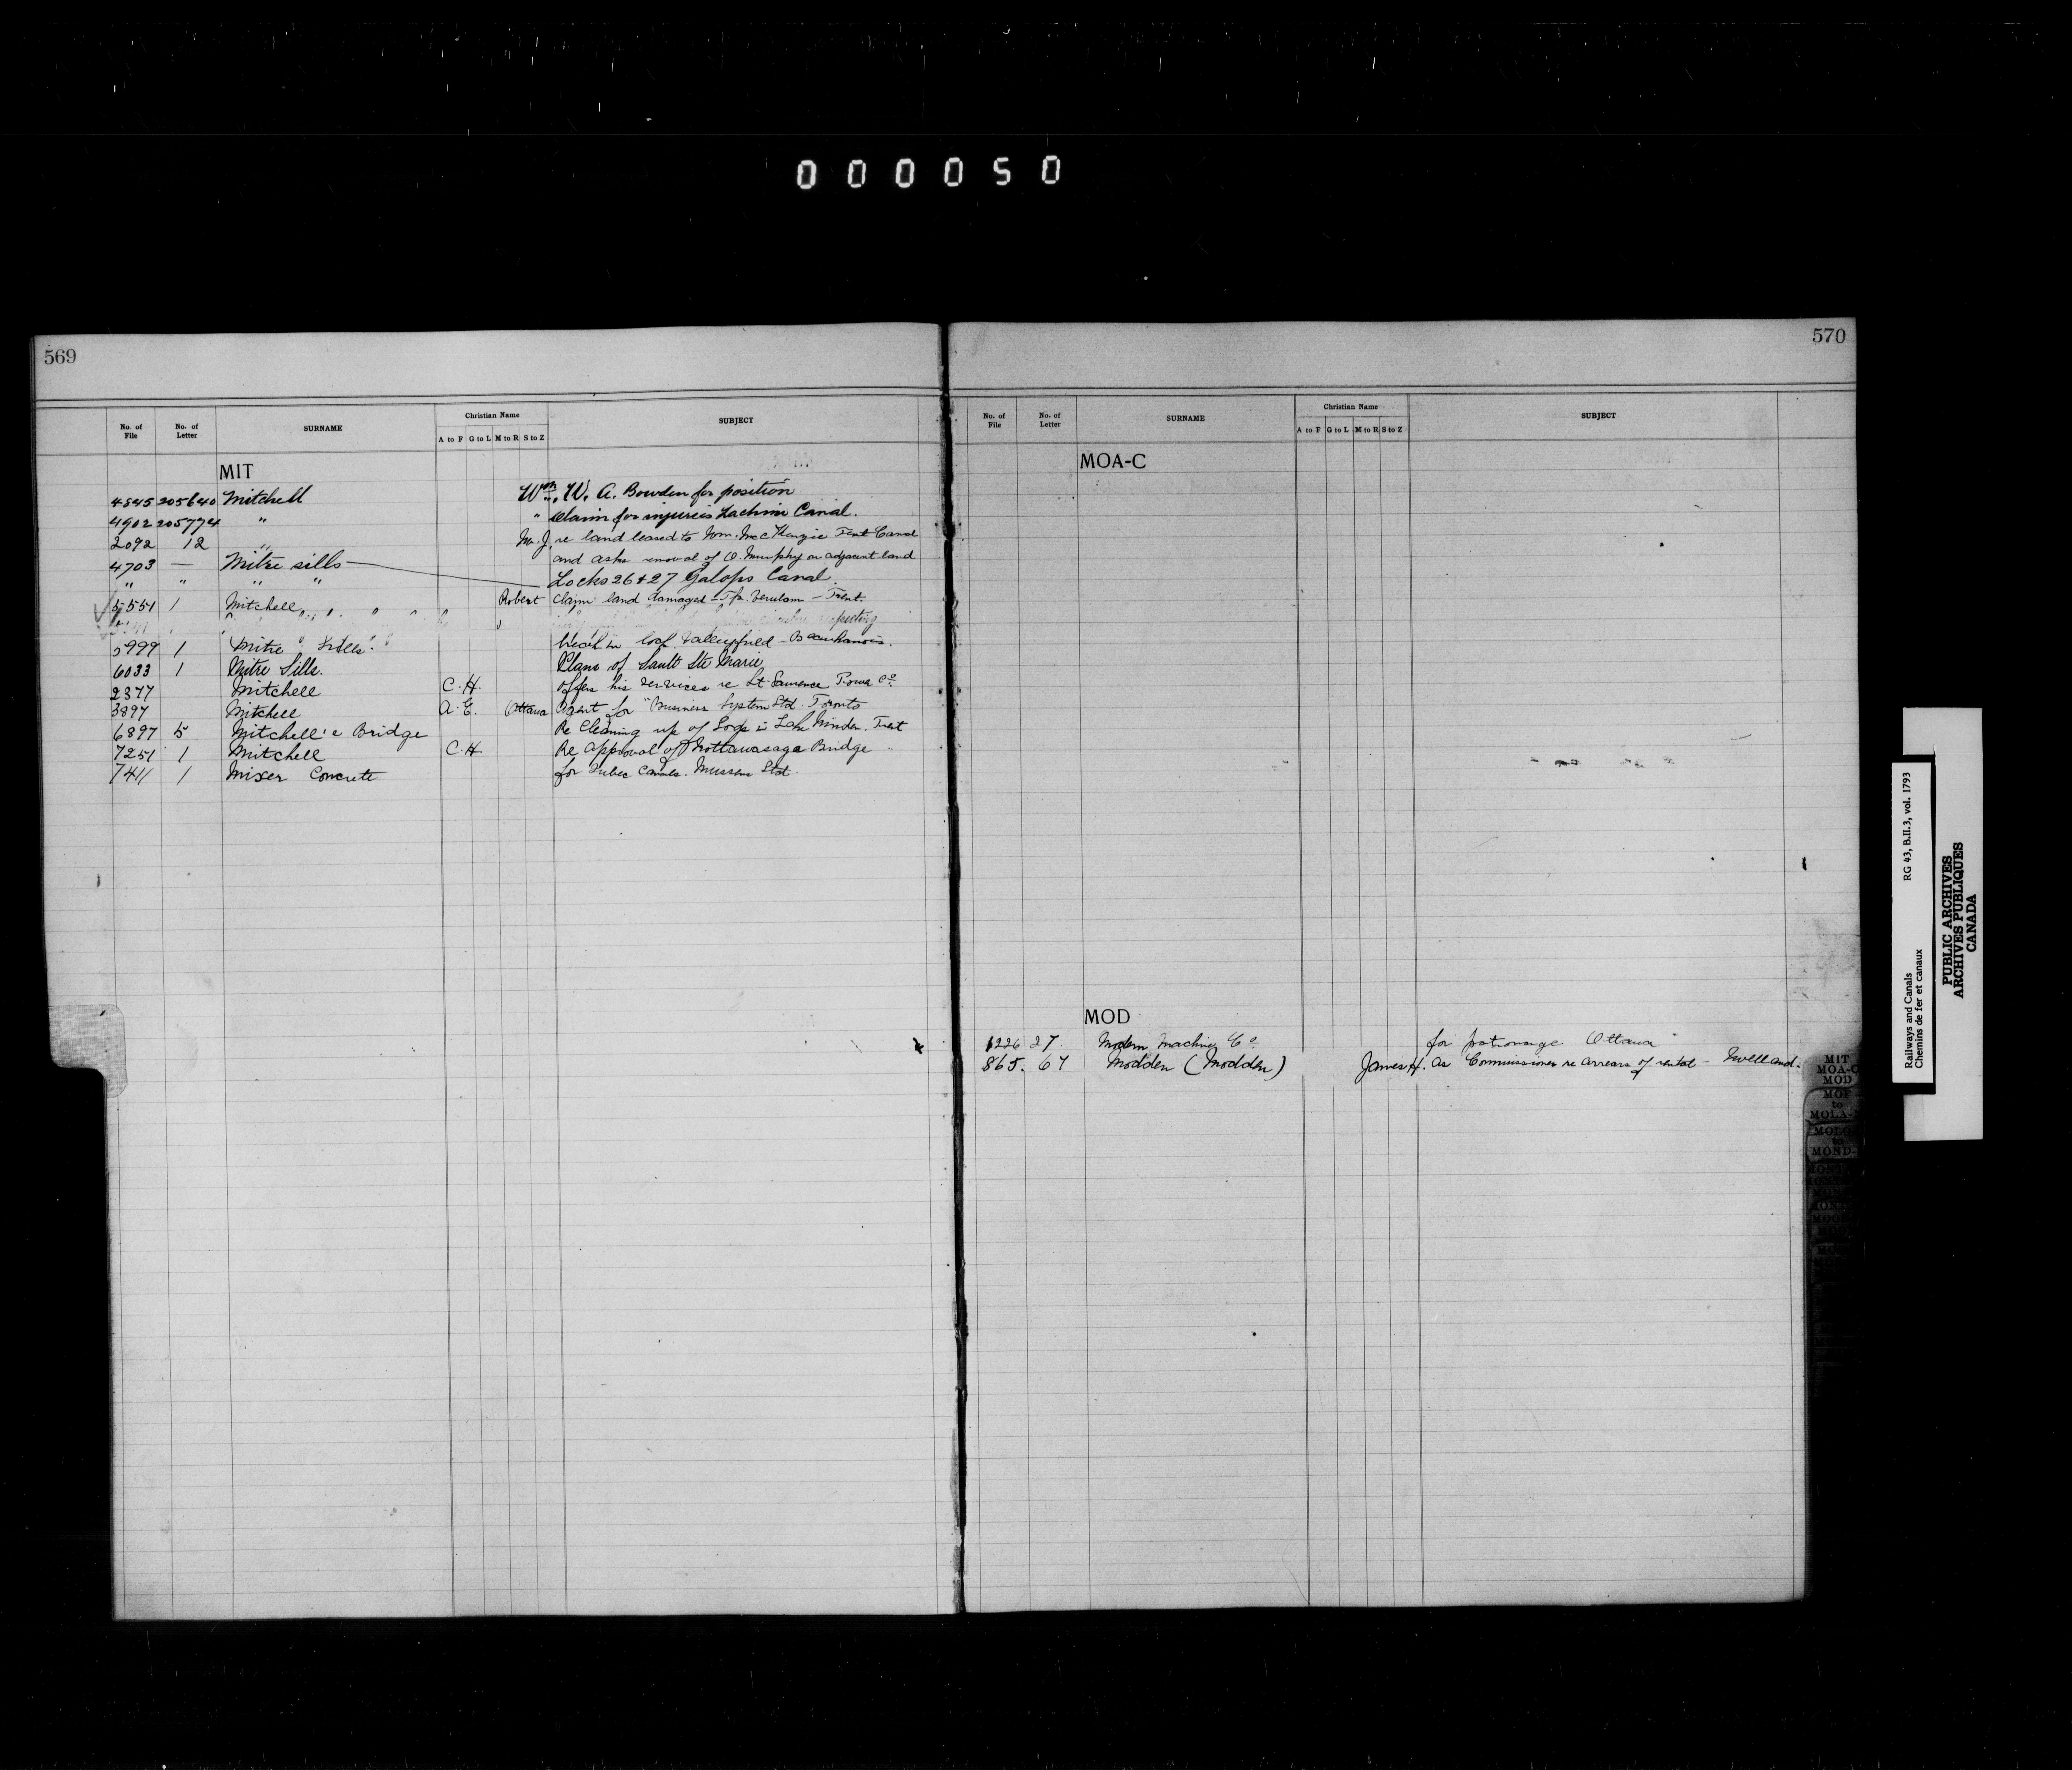 000050
569
No. of File No. of Letter SURNAME Christian Name A to F G to L M to R S to Z SUBJECT
MIT
4845 205640 Mitchell Wm. W. A. Bowden for position
4902 205774 " " Claim for injuries Lachine Canal.
2092 12 " M. J. re land leased to Wm. McKenzie Trent Canal
and asks removal of O. Murphy on adjacent land
4703 — Mitre sills
" " " " Locks 26 & 27 Galops Canal.
5551 1 Mitchell Robert Claim land damaged - Tp. Verulam - Trent.
respecting
5999 1 Mitre Sills Valleyfield - Beauharnois.
6033 1 Mitre Sills. Plans of Sault Ste Marie
2377 Mitchell C. H. offers his services re St. Lawrence Power Co.
3897 Mitchell A. E. Ottawa Agent for "Business System Ltd. Toronto
6897 5 Mitchell's Bridge Re Cleaning up of Logs in Lake Minden. Trent
7251 1 Mitchell C. H. Re Approval of Nottawasaga Bridge "
7411 1 Mixer Concrete for Quebec Canals. Mussens Ltd.
570
No. of File No. of Letter SURNAME Christian Name A to F G to L M to R S to Z SUBJECT
MOA-C
MOD
1226 27. Modern Machine Co. for patronage Ottawa
865. 67 Modden (Modden) James H. as Commissioner re arrears of rental - Welland.
MIT
MOA-C
MOD
MOF
to
MOLA-
MOLO
to
MOND-
Railways and Canals RG 43, B.II.3, vol. 1793
Chemins de fer et canaux
PUBLIC ARCHIVES
ARCHIVES PUBLIQUES
CANADA